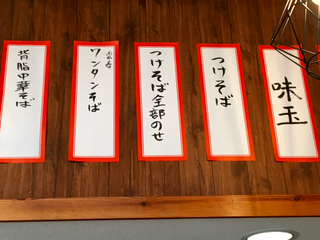 味玉
つけそば
つけそば全部のせ
ワンタンそば
背脂中華そば